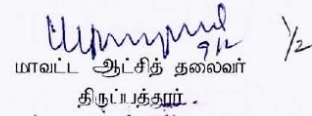 9/2 1/2
மாவட்ட ஆட்சித் தலைவர்
திருப்பத்தூர்.